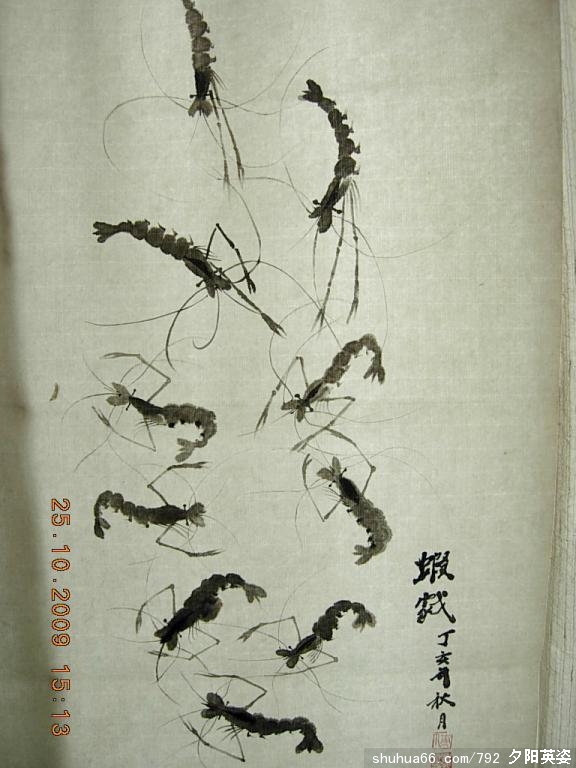 蝦戲
丁亥年秋月
25.10.2009 15:13
shuhua66.com/792 夕阳英姿